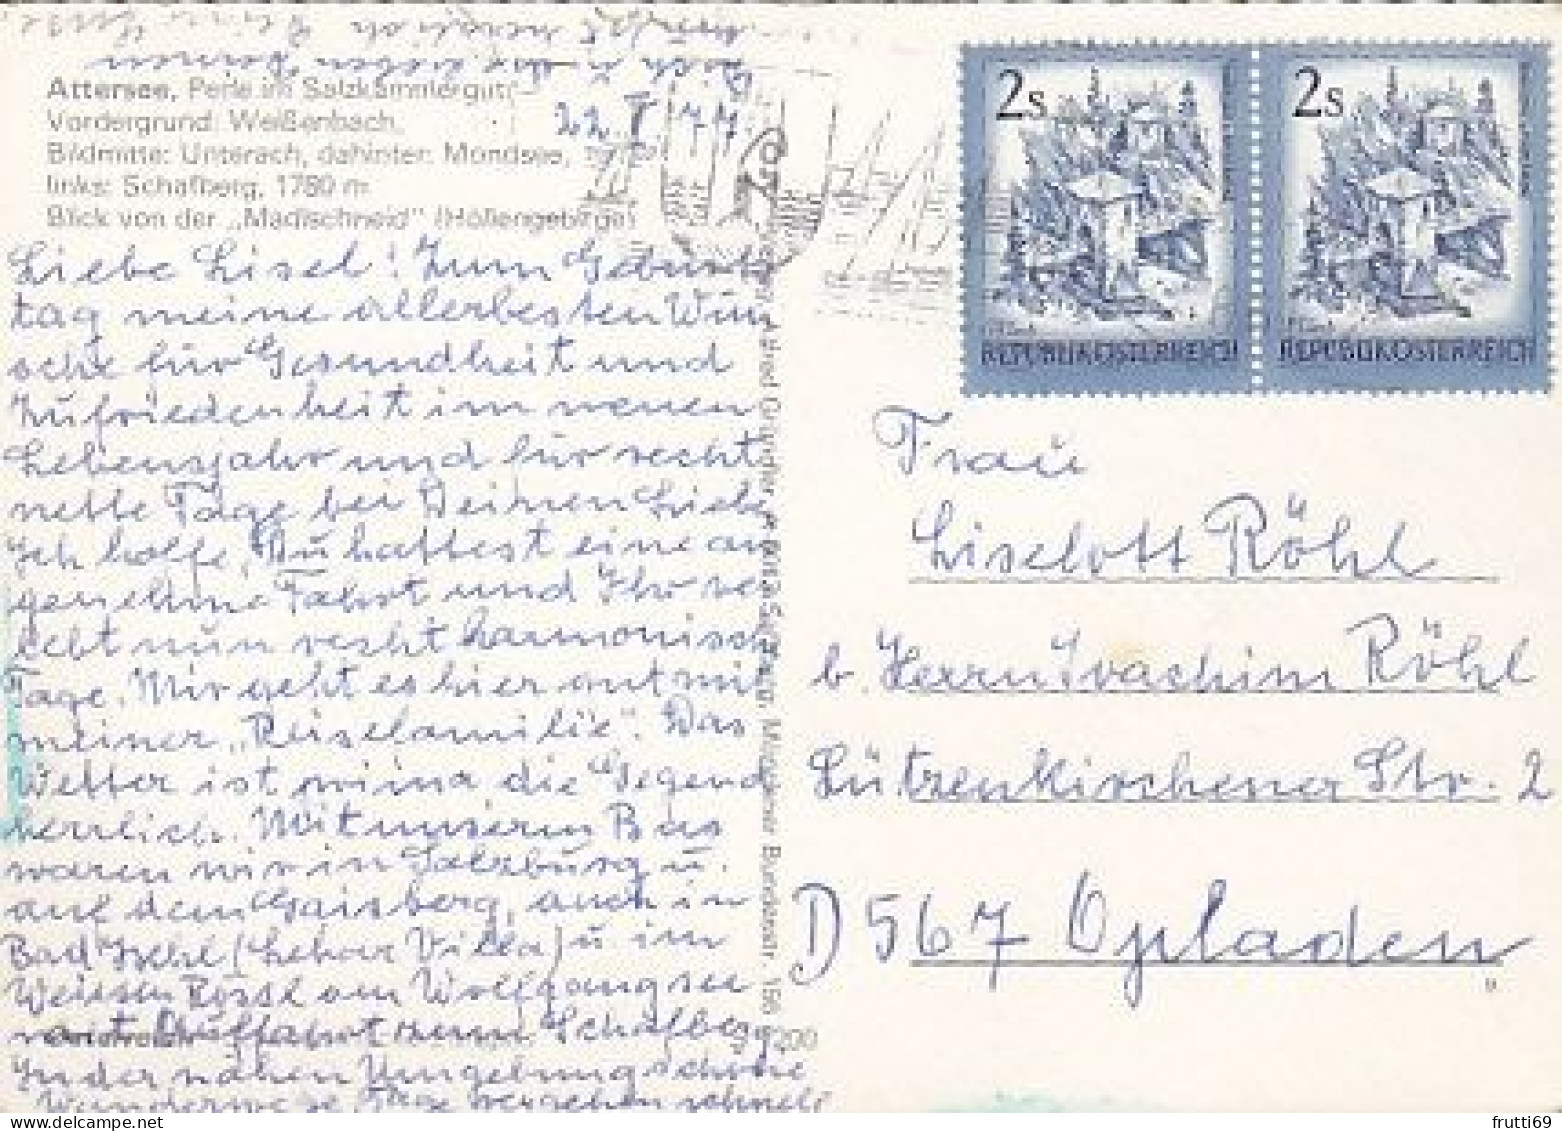 Attersee, Perle im Salzkammergut
Vordergrund: Weißenbach,
Bildmitte: Unterach, dahinter: Mondsee,
links: Schafberg, 1780 m
Blick von der „Madlschneid" (Höllengebirge)
22. V. 77.
Liebe Lisel! Zum Geburts
tag meine allerbesten Wün
sche für Gesundheit und
Zufriedenheit im neuen
Lebensjahr und für recht
nette Tage bei Deinen Lieben
Ich hoffe, Du hattest eine an
genehme Fahrt und Ihr ver
lebt nun recht harmonische
Tage. Mir geht es hier gut mit
meiner „Reisefamilie". Das
Wetter ist prima die Gegend
herrlich. Mit unserem Bus
waren wir in Salzburg u.
auf dem Gaisberg, auch in
Bad Ischl (Lehar Villa) u. im
Weissen Rössl am Wolfgangsee
mit Auffahrt zum Schafberg
In der nahen Umgebung schöne
Wanderwege, Tage vergehen schnell
2s
REPUBLIK ÖSTERREICH
2s
REPUBLIK ÖSTERREICH
Frau
Liselott Röhl
b. Herrn Joachim Röhl
Lützenkirchener Str. 2
D 567 Opladen
frutti69